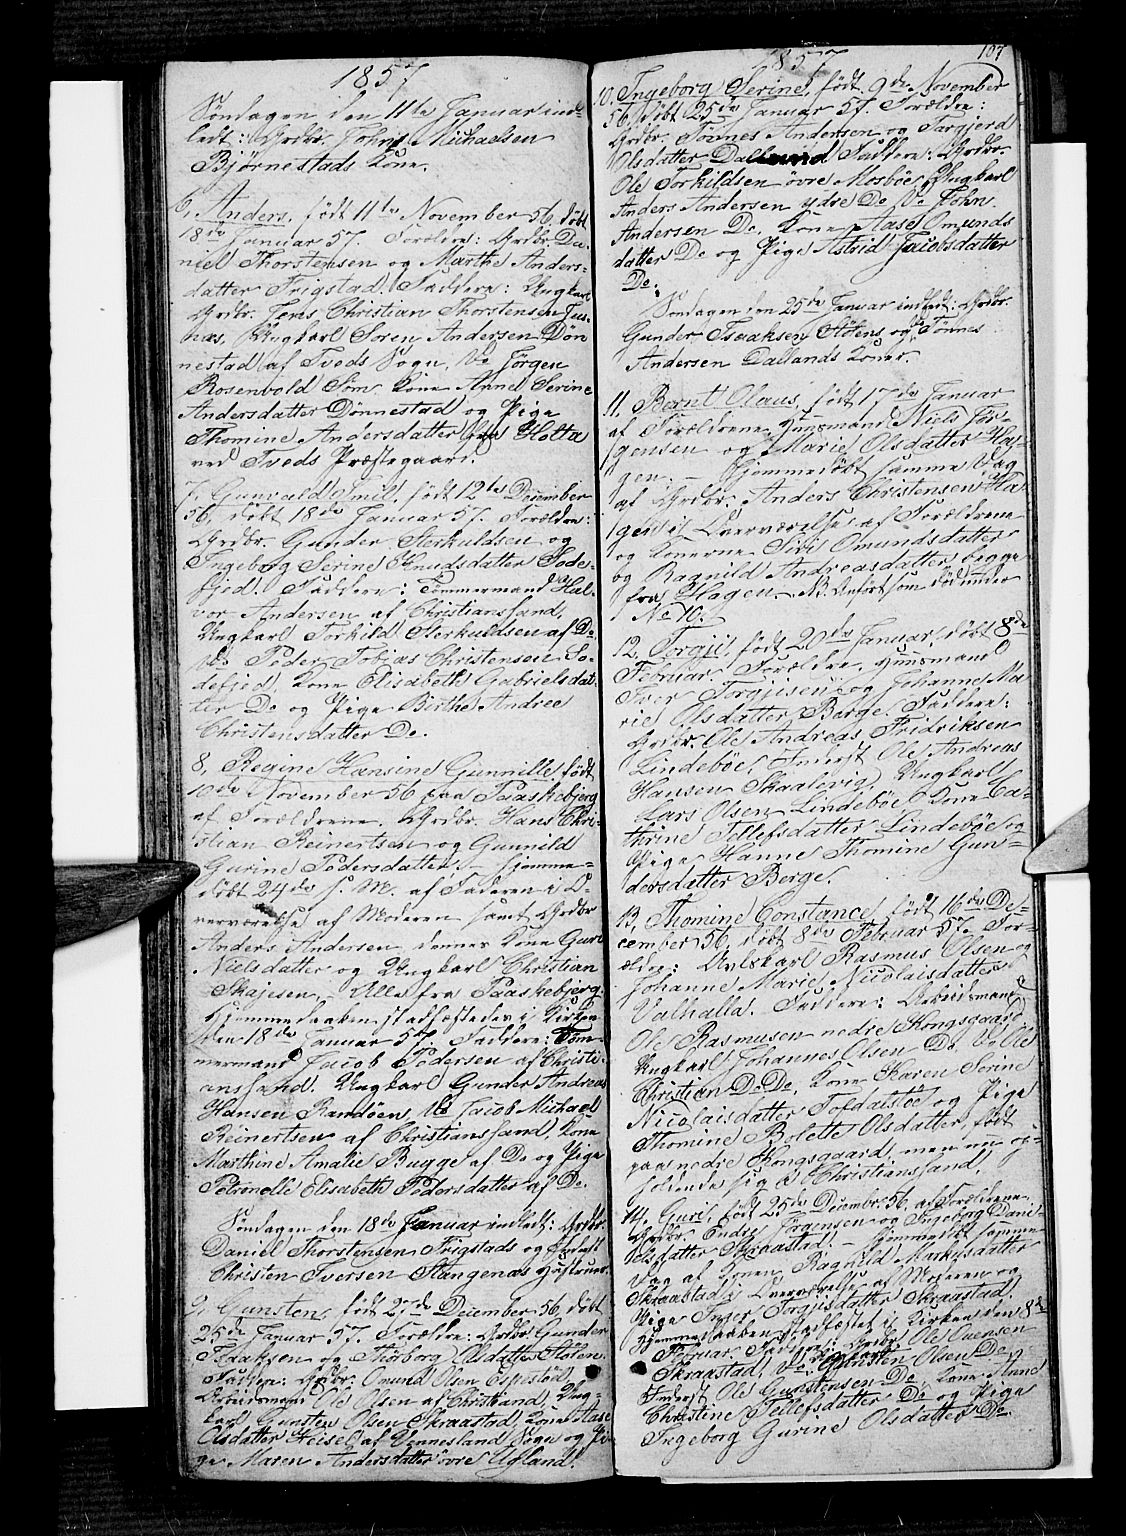 1857
Søndagen den 11te Januar ind-
ledt: Grdbr. John Michaelsen
Bjørnestads Kone.
6, Anders, født 11te November 56, døbt
18de Januar 57. Forældre: Grdbr. Da-
niel Thorstensen og Marthe Anders-
datter Frigstad. Faddere: Ungkarl
Grdbr. Jens Christian Thorstensen
Ungkarl Søren Andersen Døn-
nestad af Tveds Sogn, Do Jørgen
Rosenvold Søm, Kone Anne Serine
Andersdatter Dønnestad og Pige
Thomine Andersdatter Holta
ved Tveds Præstegaard.
7, Gunvald Emil, født 12te December
56, døbt 18de Januar 57. Forældre:
Grdbr. Gunder Sterkuldsen og
Ingeborg Serine Knudsdatter Tode-
fjed. Faddere: Tømmermand Hal-
vor Andersen af Christianssand,
Ungkarl Torkild Sterkuldsen af Do
Do Peder Tobias Christensen To-
defjed, Kone Elisabeth Gabrielsdat-
ter Do og Pige Berthe Andree
Christensdatter Do.
8, Regine Hansine Gunnille, født
10de November 56 paa Paaskebjerg
af Forældrene Grdbr. Hans Chri-
stian Reinertsen og Gunnild
Gurine Pedersdatter. – Hjemme-
døbt 24de s. M. af Faderen i O-
verværelse af Moderen samt Grdbr
Anders Andersen, dennes Kone Guri
Nielsdatter og Ungkarl Christian
Skajesen, Alle fra Paaskebjerg.
Hjemmedaaben stadfæstedes i Kirken
den 18de Januar 57. Faddere: Tøm-
mermand Jacob Pedersen af Christi-
anssand, Ungkarl Gunder Andreas
Hansen Randøen, Do Jacob Michael
Reinertsen af Christianssand, Kone
Marthine Amalie Bugge af Do og Pige
Petronelle Elisabeth Pedersdatter af Do.
Søndagen den 18de Januar indledt: Grdbr.
Daniel Thorstensen Frigstads og Inderst
Christen Iversen Stangenæs Hustruer.
9, Gunsten, født 27de December 56, døbt
25de Januar 57. Forældre: Grdbr. Gunder
Isaaksen og Thorborg Olsdatter Støten.
Faddere: Grdbr. Omund Olsen Espestøl,
Arbeidsmand Ole Olsen af Christiansand, Ung-
karl Gunsten Olsen Skraastad, Kone Aase
Olsdatter Heisel af Vennesland Sogn og Pi-
ge Maren Andersdatter øvre Ugland.
107
1857
10. Ingeborg Serine, født 9de November
56, døbt 25de Januar 57. Forældre:
Grdbr. Tønnes Andersen og Targjerd
Olsdatter Dalland. Faddere: Grdbr
Ole Torkildsen øvre Mosbøe, Ungkarl
Anders Andersen ydre Do, Do John
Andersen Do, Kone Aase Omunds-
datter Do og Pige Astrid Jacobsdatter
Do.
Søndagen den 25de Januar indledt: Grdbr.
Gunder Isaaksen Støtens og Tønnes
Andersen Dallands Koner.
11, Bernt Olaus, født 17de Januar
af Forældrene Huusmand Niels Jør-
gensen og Marie Olsdatter Ha-
gen. – Hjemmedøbt samme Dag
af Grdbr. Anders Christensen Ha-
gen i Overværelse af Forældrene
og Konerne Siri Omundsdatter
og Ragnild Andreasdatter begge
fra Hagen. NB. Anført som død under
No 10.
12, Torgji, født 20de Januar, døbt 8de
Februar. Forældre, Huusmand
Iver Torgjisen og Johanne Ma-
rie Olsdatter Berge. Faddere:
Grdbr. Ole Andreas Fridriksen
Lindebøe, Inderst Ole Andreas
Hansen Skaalevig, Ungkarl
Lars Olsen Lindebøe, Kone Ca-
thrine Tollefsdatter Lindebøe og
Pige Hanne Thomine Gun-
dersdatter Berge.
13, Thomine Constance, født 16de De-
cember 56, døbt 8de Februar 57. For-
ældre: Avlskarl Rasmus Olsen og
Johanne Marie Nicolaisdatter
Valhalla. Faddere: Arbeidsmand
Ole Rasmusen nedre Kongsgaard,
Ungkarl Johannes Olsen Do, Do Ole
Christian Do Do, Kone Karen Serine
Nicolaisdatter Tofdalsbøe og Pige
Thomine Bolette Olsdatter, født
paa nedre Kongsgaard, men nu op-
holdende sig i Christianssand.
14, Guri, født 25de Decembr. 56 af Forældrene
Grdbr. Endre Jørgensen og Ingeborg Dani-
elsdatter Skraastad. – Hjemmedøbt samme
Dag af Konen Ragnild Markusdatter
Skraastad i Overværelse af Moderen og
Pige Inger Torgusdatter Skraastad.
Hjemmedaaben stadfæstet i Kirken den 8de
Februar. Faddere: Grdbr Ole Evensen
Skraastad, Do Gunsten Olsen Do,
Inderst Ole Gunstensen Do, Kone Anne
Christine Tollefsdatter Do og Pige
Ingeborg Gurine Olsdatter Do.